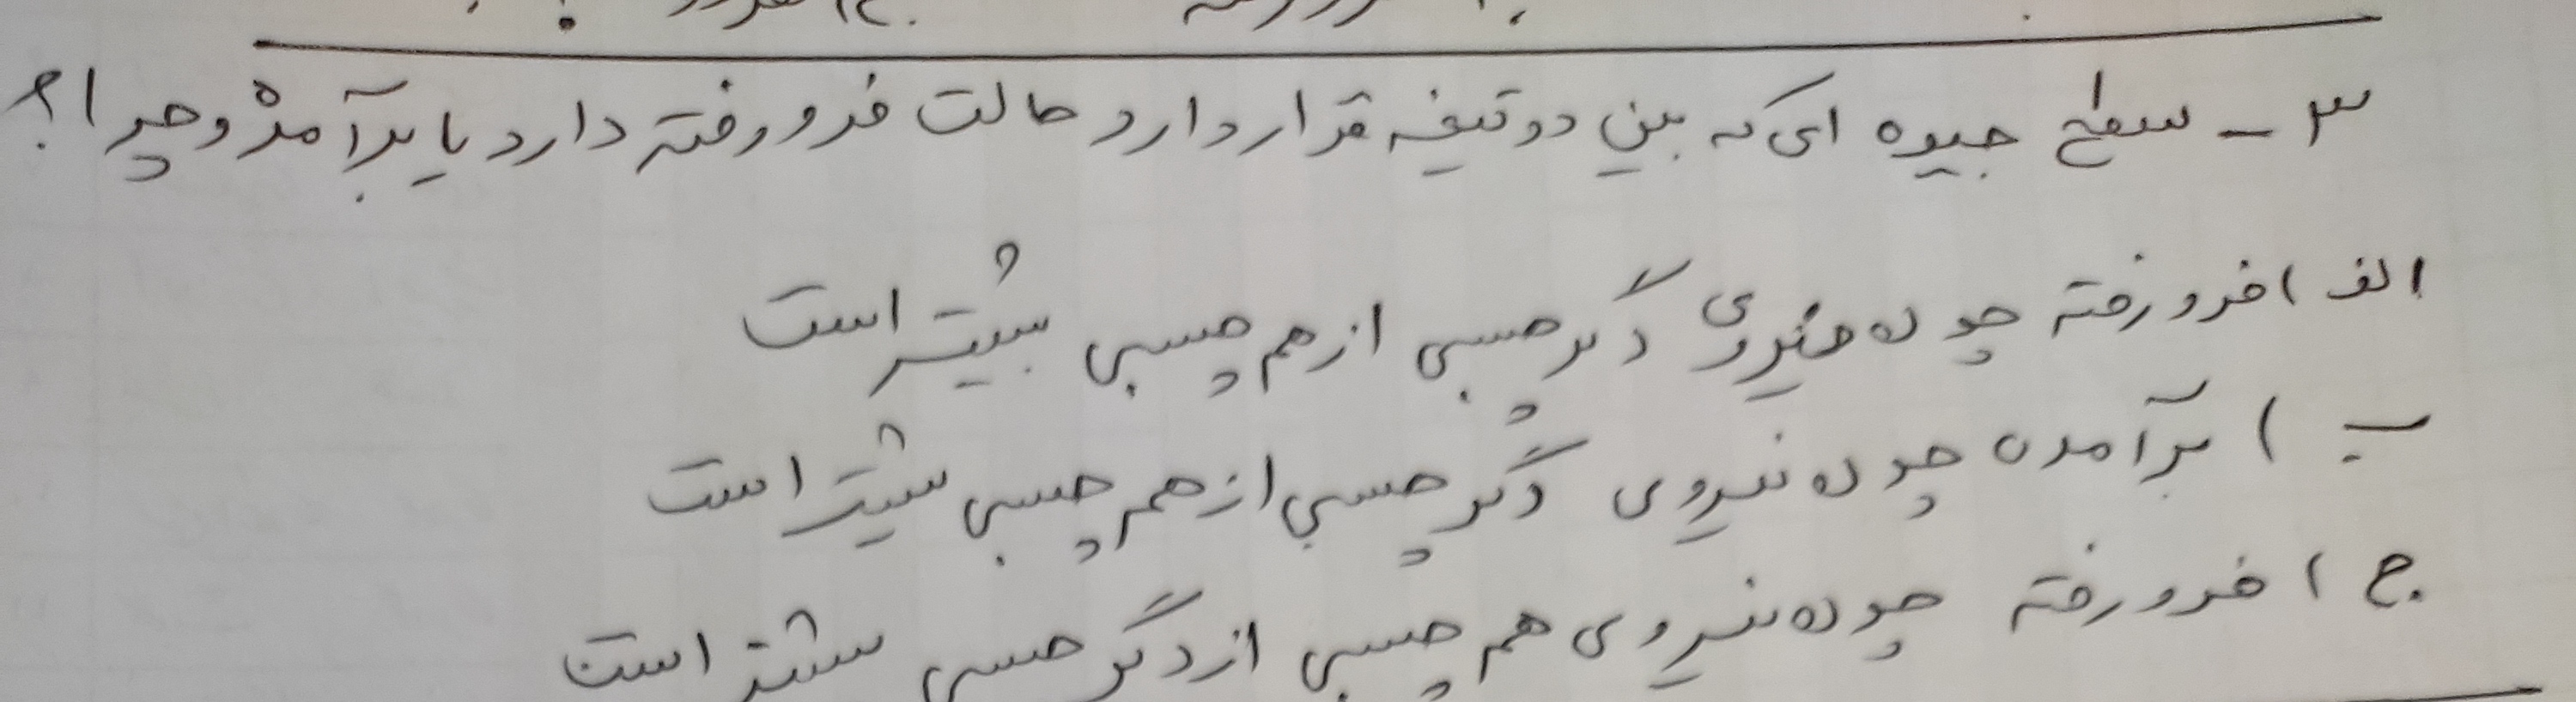 ۳ - سطح جیوه ای که بین دو تیغه قرار دارد حالت فرو رفته دارد یا برآمده و چرا؟
الف) فرو رفته چون نیروی دگرچسبی از هم چسبی بیشتر است
ب) برآمده چون نیروی دگرچسبی از هم چسبی بیشتر است
ج) فرو رفته چون نیروی هم چسبی از دگرچسبی بیشتر است